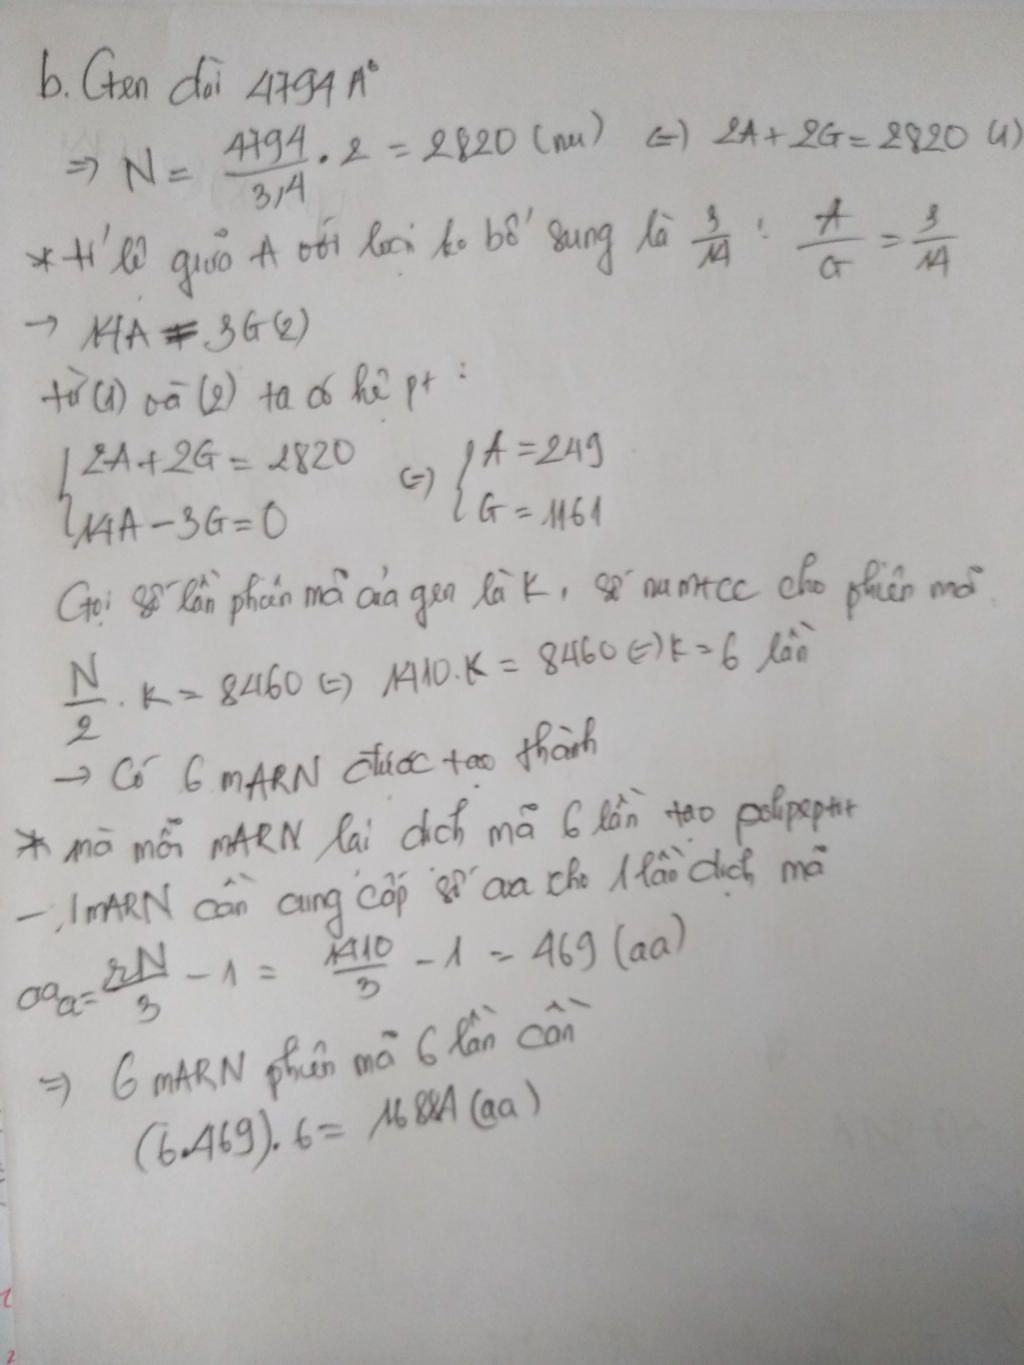 b. Gen dài 4794 A°
=> N = 4794/3,4 . 2 = 2820 (nu) <=> 2A + 2G = 2820 (1)
* tỉ lệ giữa A với loại ko bổ sung là 3/14 : A/G = 3/14
→ 14A = 3G (2)
từ (1) và (2) ta có hệ pt :
{ 2A + 2G = 2820 <=> { A = 249
14A - 3G = 0 G = 1161
Gọi số lần phiên mã của gen là K, số nu mtcc cho phiên mã
N/2 . K = 8460 <=> 1410.K = 8460 <=> K = 6 lần
→ Có 6 mARN được tạo thành
* mà mỗi mARN lại dịch mã 6 lần tạo polipeptit
- 1 mARN cần cung cấp số aa cho 1 lần dịch mã
= rN/3 - 1 = 1410/3 - 1 = 469 (aa)
=> 6 mARN phiên mã 6 lần cần
(6.469).6 = 16884 (aa)